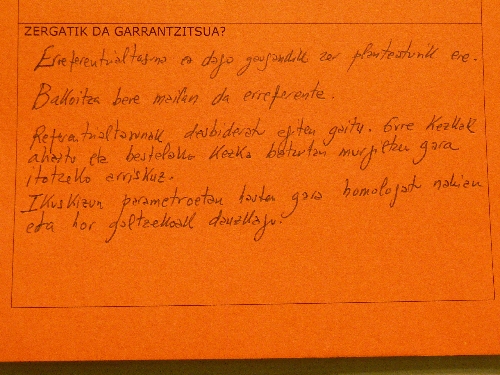 ZERGATIK DA GARRANTZITSUA?
Erreferentualtasna ez dago gugandik zer planteaturik ere.
Bakoitza bere mailan da erreferente.
Referentualtasunak desbideratu egiten gaitu. Gure kezkak
ahaztu eta bestelako kezka batzutan murgiltzen gara
itotzeko arriskuz.
Ikuskizun parametroetan hasten gara homologatu nahian
eta hor galtzekoak dauzkagu.